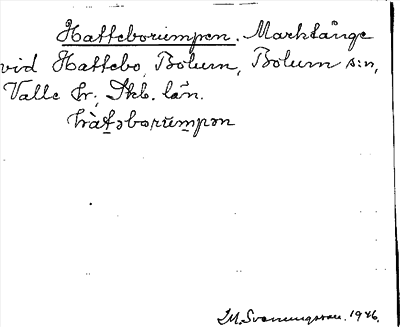 Hatteborumpan. Marktånge
vid Hattebo, Bolum, Bolum s:n,
Valle hr., Skb. län.
hàtəborum̀pən
I.M. Svenungsson. 1946.